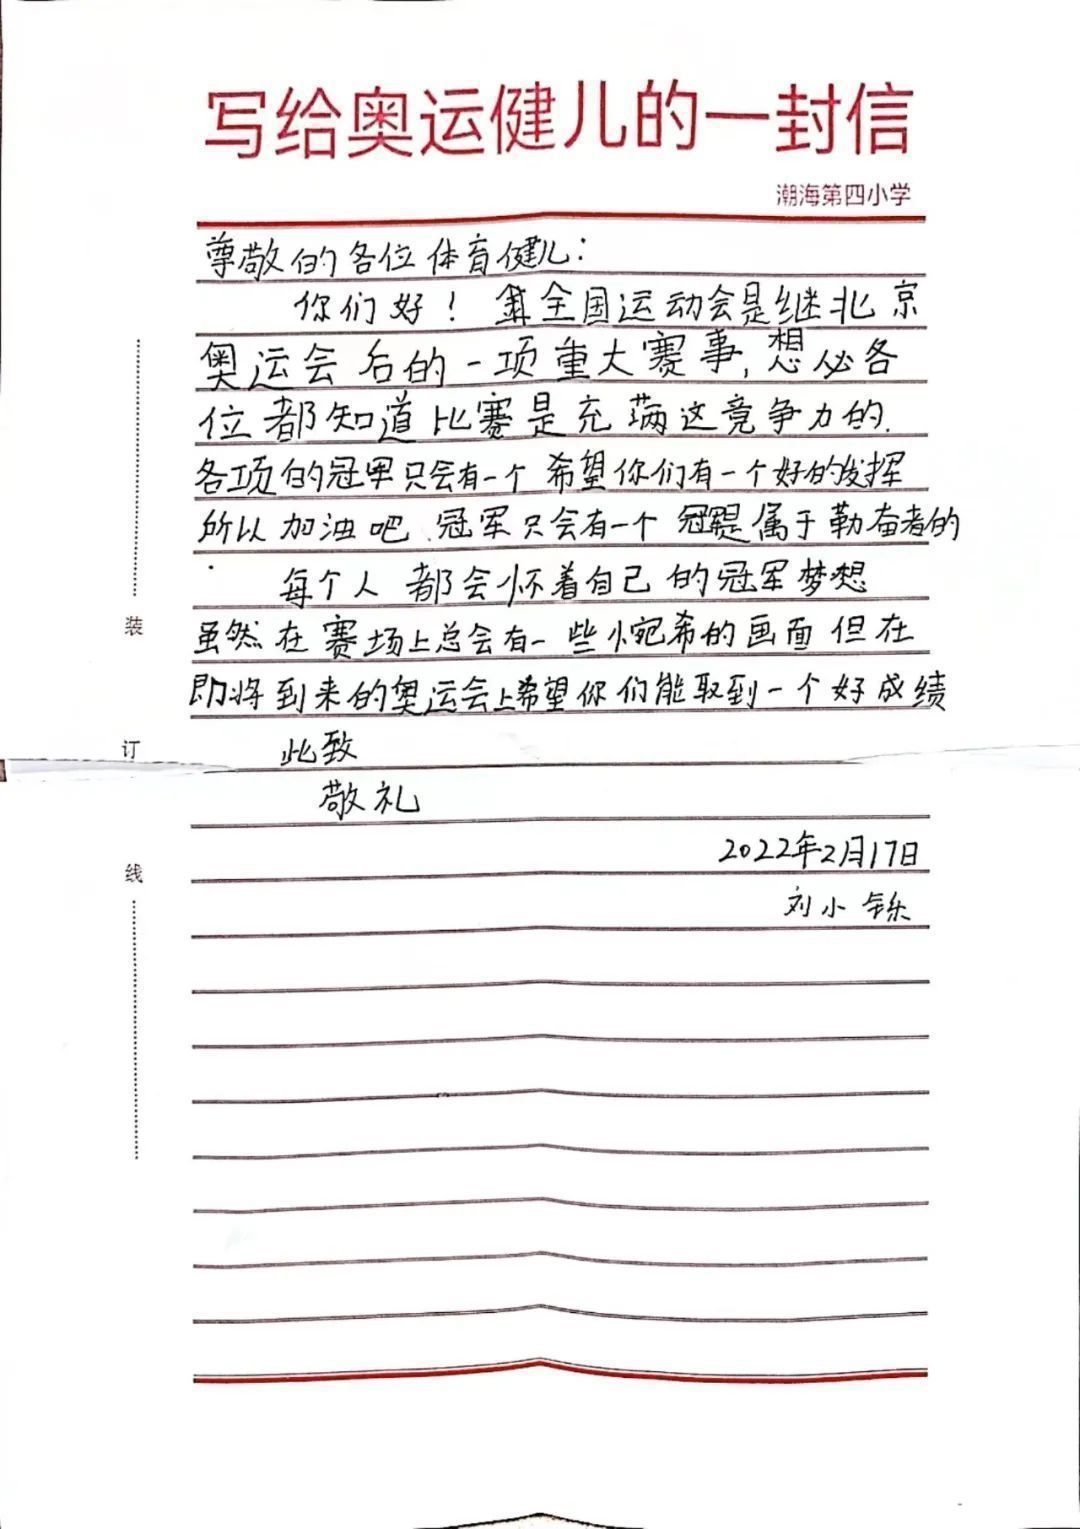 写给奥运健儿的一封信
潮海第四小学
尊敬的各位体育健儿：
你们好！ 全国运动会是继北京
奥运会后的一项重大赛事,想必各
位都知道比赛是充满这竞争力的.
各项的冠军只会有一个 希望你们有一个好的发挥
所以加油吧、冠军只会有一个 冠 是属于勤奋者的
每个人都会怀着自己的冠军梦想
虽然在赛场上总会有一些惋希的画面但在
即将到来的奥运会上希望你们能取到一个好成绩
此致
敬礼
2022年2月17日
刘小铄
装
订
线